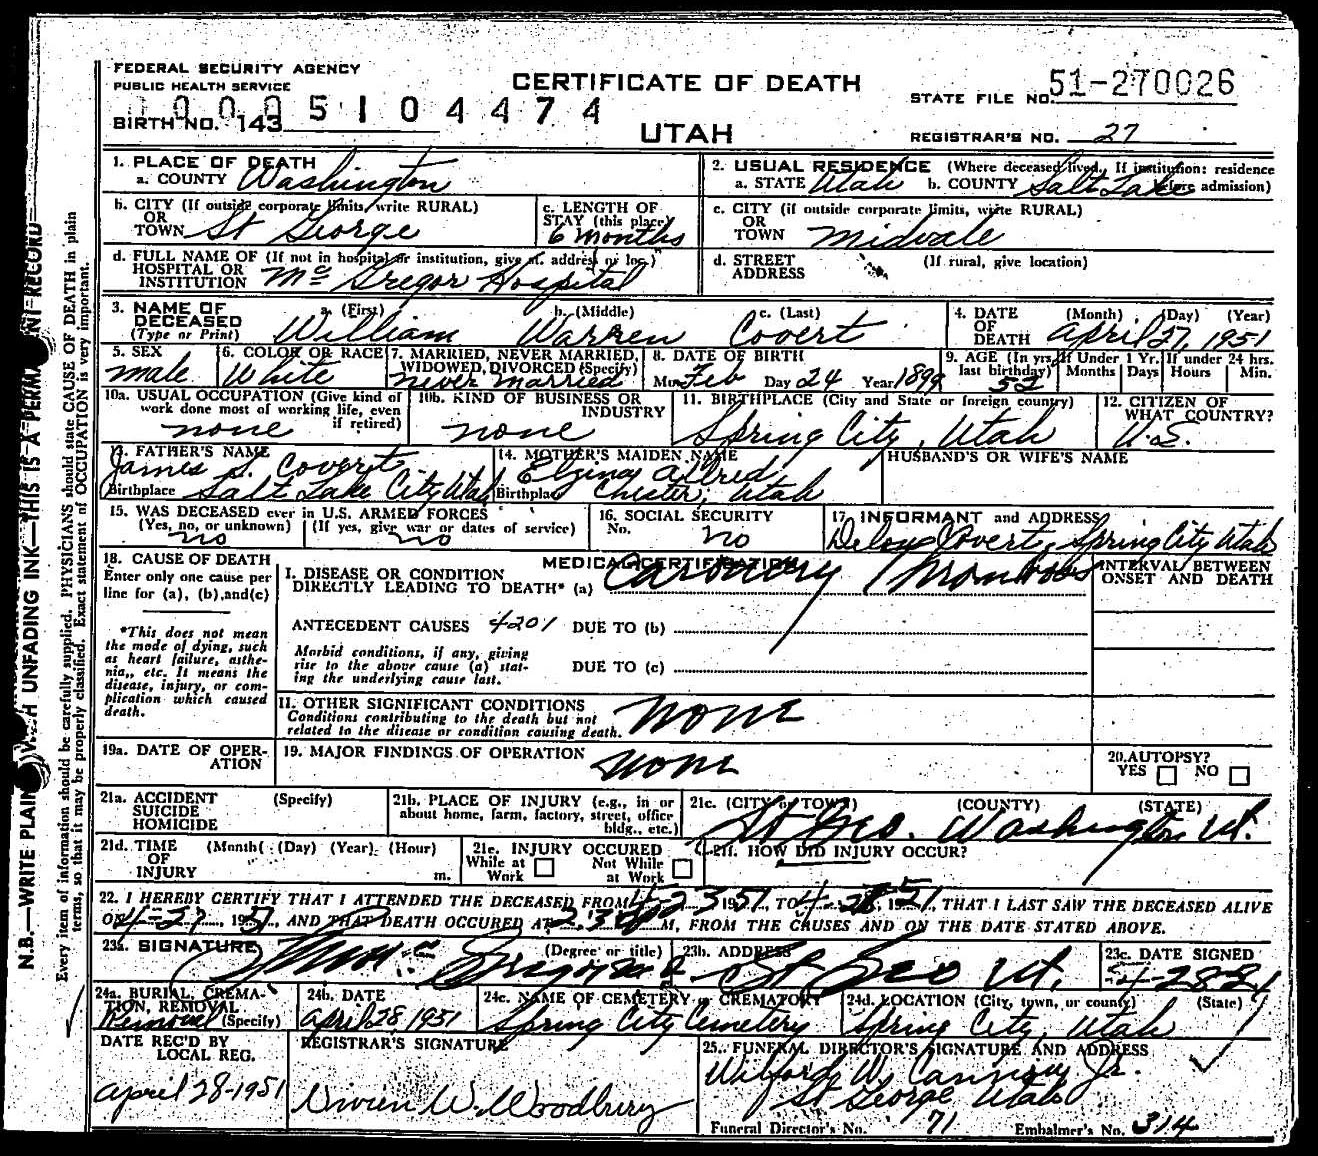 FEDERAL SECURITY AGENCY
PUBLIC HEALTH SERVICE
BIRTH NO. 143
00005104474
CERTIFICATE OF DEATH
UTAH
STATE FILE NO. 51-270026
REGISTRAR'S NO. 27
1. PLACE OF DEATH
a. COUNTY Washington
2. USUAL RESIDENCE (Where deceased lived. If institution: residence before admission)
a. STATE Utah b. COUNTY Salt Lake
b. CITY (If outside corporate limits, write RURAL)
OR
TOWN St George
c. LENGTH OF
STAY (this place)
6 months
c. CITY (if outside corporate limits, write RURAL)
OR
TOWN Midvale
d. FULL NAME OF (If not in hospital or institution, give st. address or loc.)
HOSPITAL OR
INSTITUTION Mc Gregor Hospital
d. STREET (If rural, give location)
ADDRESS
3. NAME OF
DECEASED
(Type or Print)
a. (First) b. (Middle) c. (Last)
William Warren Covert
4. DATE
OF
DEATH
(Month) (Day) (Year)
April 27, 1951
5. SEX
male
6. COLOR OR RACE
White
7. MARRIED, NEVER MARRIED,
WIDOWED, DIVORCED (Specify)
Never married
8. DATE OF BIRTH
Mo. Feb Day 24 Year 1899
9. AGE (In yrs. last birthday)
52
If Under 1 Yr.
Months Days
If under 24 hrs.
Hours Min.
10a. USUAL OCCUPATION (Give kind of
work done most of working life, even
if retired)
none
10b. KIND OF BUSINESS OR
INDUSTRY
none
11. BIRTHPLACE (City and State or foreign country)
Spring City, Utah
12. CITIZEN OF
WHAT COUNTRY?
U.S.
13. FATHER'S NAME
James S. Covert
Birthplace Salt Lake City Utah
14. MOTHER'S MAIDEN NAME
Elzina Allred
Birthplace Chester, Utah
HUSBAND'S OR WIFE'S NAME
15. WAS DECEASED ever in U.S. ARMED FORCES
(Yes, no, or unknown) (If yes, give war or dates of service)
no no
16. SOCIAL SECURITY
No. no
17. INFORMANT and ADDRESS
Covert, Spring City Utah
18. CAUSE OF DEATH
Enter only one cause per
line for (a), (b), and (c)
*This does not mean
the mode of dying, such
as heart failure, asthe-
nia, etc. It means the
disease, injury, or com-
plication which caused
death.
MEDICAL CERTIFICATION
I. DISEASE OR CONDITION
DIRECTLY LEADING TO DEATH* (a) Coronary Thrombosis
ANTECEDENT CAUSES 4201 DUE TO (b)
Morbid conditions, if any, giving
rise to the above cause (a) stat-
ing the underlying cause last.
DUE TO (c)
INTERVAL BETWEEN
ONSET AND DEATH
11. OTHER SIGNIFICANT CONDITIONS
Conditions contributing to the death but not
related to the disease or condition causing death.
none
19a. DATE OF OPER-
ATION
19. MAJOR FINDINGS OF OPERATION
none
20. AUTOPSY?
YES NO
21a. ACCIDENT (Specify)
SUICIDE
HOMICIDE
21b. PLACE OF INJURY (e.g., in or
about home, farm, factory, street, office
bldg., etc.)
21c. (CITY or TOWN) (COUNTY) (STATE)
St Geo. Washington Ut.
21d. TIME (Month) (Day) (Year) (Hour)
OF
INJURY m.
21e. INJURY OCCURED
While at Work Not While at Work
21f. HOW DID INJURY OCCUR?
22. I HEREBY CERTIFY THAT I ATTENDED THE DECEASED FROM 4-23 1951, TO 4- 1951, THAT I LAST SAW THE DECEASED ALIVE
ON 4-27, 1951, AND THAT DEATH OCCURED AT 2:30 M, FROM THE CAUSES AND ON THE DATE STATED ABOVE.
23a. SIGNATURE (Degree or title)
Mc Gregor M.D.
23b. ADDRESS
St Geo Ut.
23c. DATE SIGNED
4-28-51
24a. BURIAL, CREMA-
TION, REMOVAL
Removal (Specify)
24b. DATE
April 28, 1951
24c. NAME OF CEMETERY or CREMATORY
Spring City Cemetery
24d. LOCATION (City, town, or county) (State)
Spring City, Utah
DATE REC'D BY
LOCAL REG.
April 28-1951
REGISTRAR'S SIGNATURE
Vivien W. Woodbury
25. FUNERAL DIRECTOR'S SIGNATURE AND ADDRESS
Wilford W. Cannon Jr.
St George Utah
Funeral Director's No. 71 Embalmer's No. 314
N.B.—WRITE PLAINLY WITH UNFADING INK—THIS IS A PERMANENT RECORD
Every item of information should be carefully supplied. PHYSICIANS should state CAUSE OF DEATH in plain
terms, so that it may be properly classified. Exact statement of OCCUPATION is very important.